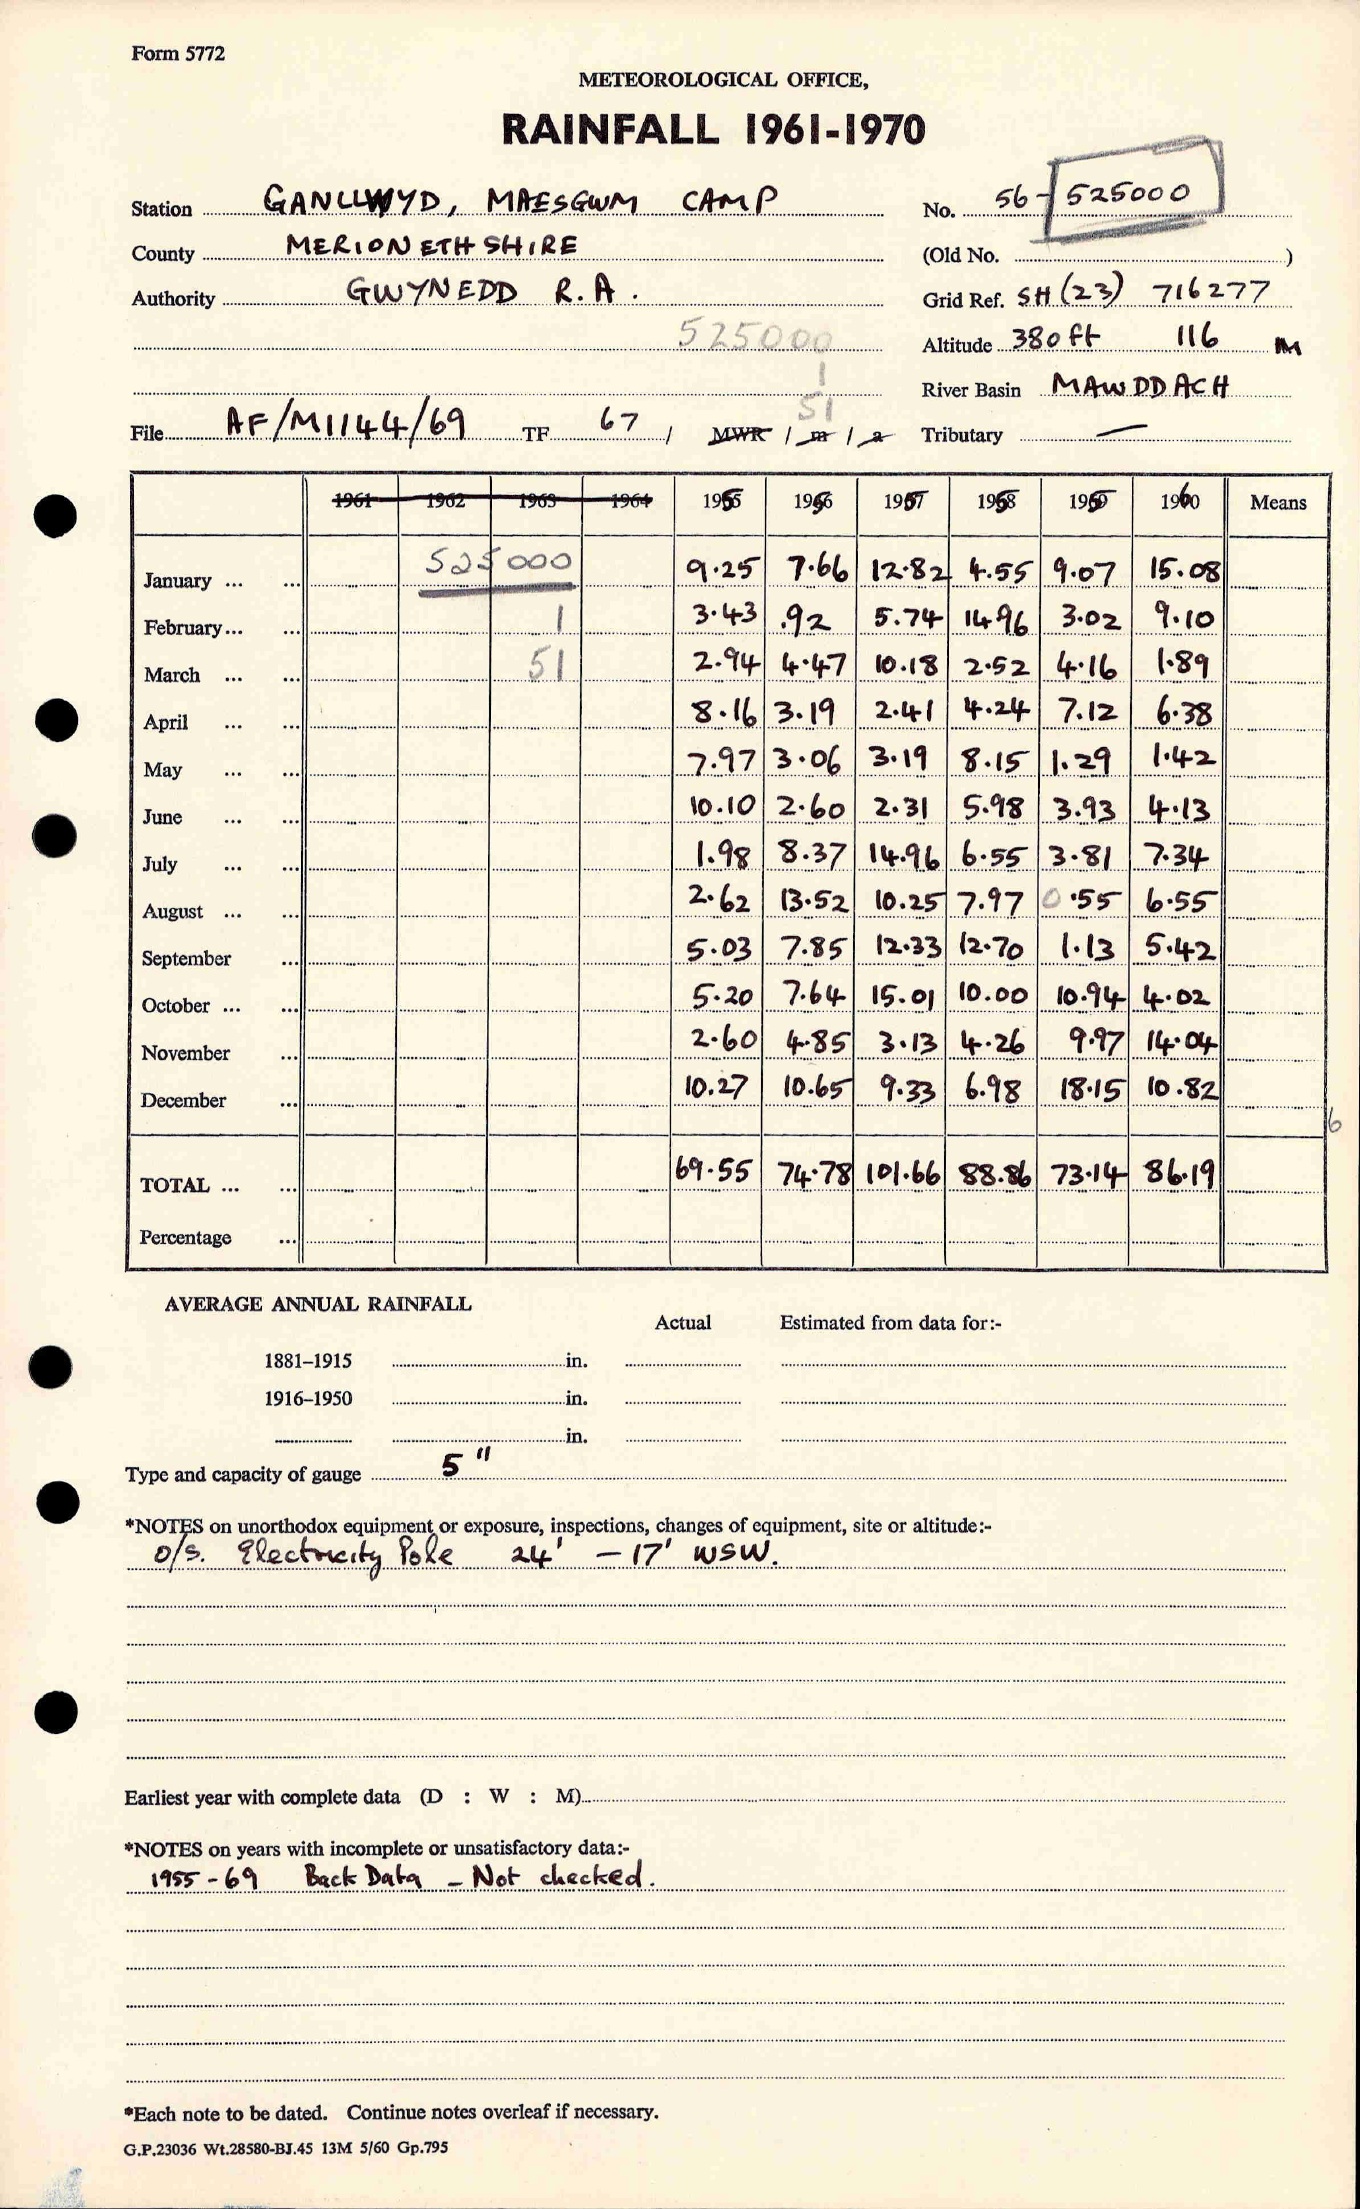 Form 5772
METEOROLOGICAL OFFICE,
RAINFALL 1961-1970
Station GANLLWYD, MAESGWM CAMP No. 56-525000
County MERIONETHSHIRE (Old No. )
Authority GWYNEDD R.A. Grid Ref. SH(23) 716277
525000 Altitude 380ft 116 M
1 River Basin MAWDDACH
51
File AF/M1144/69 TF 67 / MWR / m / a Tributary —
1961 1962 1963 1964 1955 1956 1957 1958 1959 1960 Means
January ... ... 525000 9.25 7.66 12.82 4.55 9.07 15.08
February... ... 1 3.43 .92 5.74 14.96 3.02 9.10
March ... ... 51 2.94 4.47 10.18 2.52 4.16 1.89
April ... ... 8.16 3.19 2.41 4.24 7.12 6.38
May ... ... 7.97 3.06 3.19 8.15 1.29 1.42
June ... ... 10.10 2.60 2.31 5.98 3.93 4.13
July ... ... 1.98 8.37 14.96 6.55 3.81 7.34
August ... ... 2.62 13.52 10.25 7.97 0.55 6.55
September ... 5.03 7.85 12.33 12.70 1.13 5.42
October ... ... 5.20 7.64 15.01 10.00 10.94 4.02
November ... 2.60 4.85 3.13 4.26 9.97 14.04
December ... 10.27 10.65 9.33 6.98 18.15 10.82
6
TOTAL ... ... 69.55 74.78 101.66 88.86 73.14 86.19
Percentage ...
AVERAGE ANNUAL RAINFALL
Actual Estimated from data for:-
1881-1915 in.
1916-1950 in.
in.
Type and capacity of gauge 5"
*NOTES on unorthodox equipment or exposure, inspections, changes of equipment, site or altitude:-
O/S. Electricity Pole 24' - 17' WSW.
Earliest year with complete data (D : W : M)
*NOTES on years with incomplete or unsatisfactory data:-
1955-69 Back Data - Not checked.
*Each note to be dated. Continue notes overleaf if necessary.
G.P.23036 Wt.28580-BJ.45 13M 5/60 Gp.795